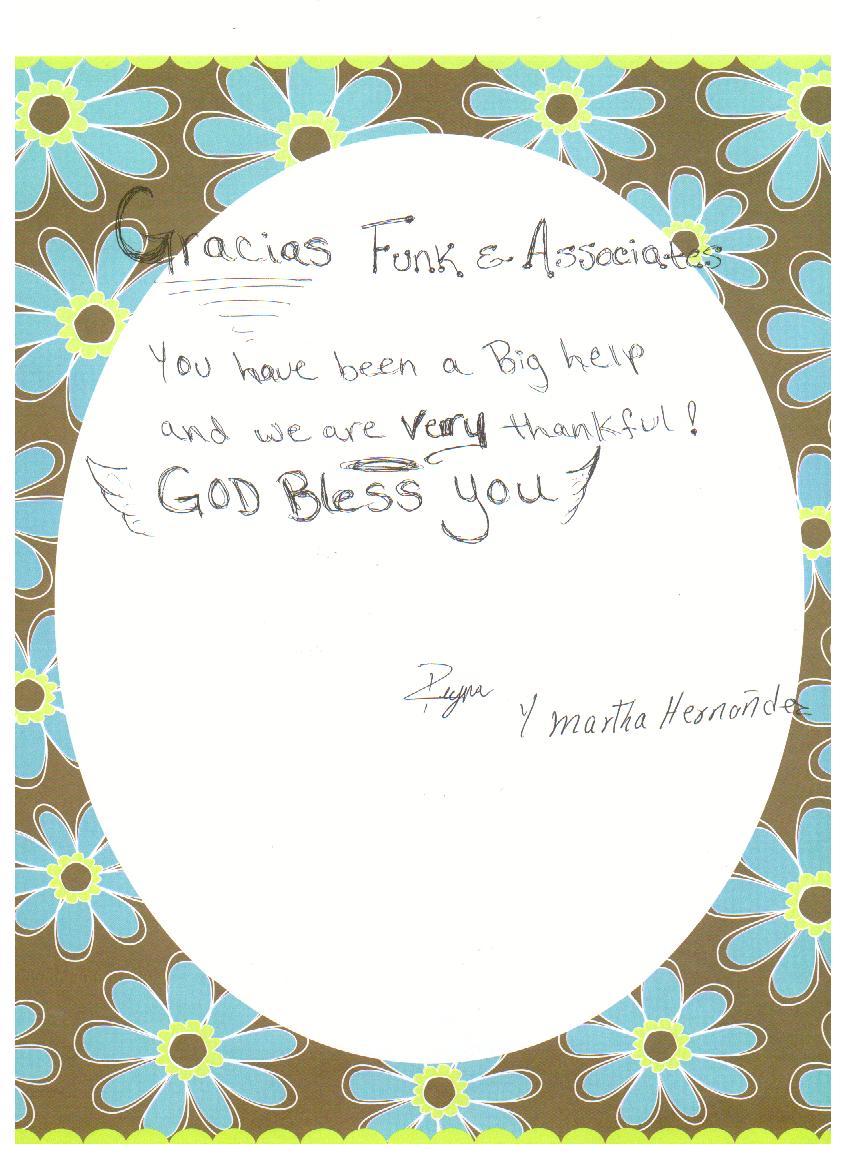 Gracias Funk & Associates
You have been a Big help
and we are very thankful!
GOD Bless you
Reyna
Y Martha Hernandez